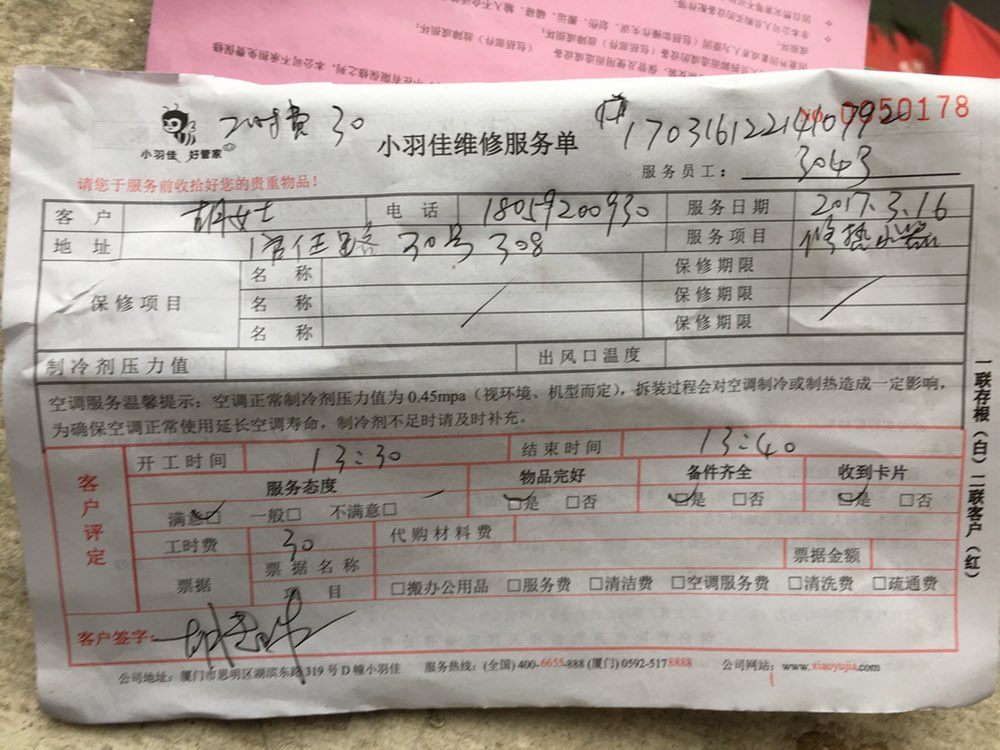 No. 0050178
工时费 30
170316122141079
小羽佳 好管家
小羽佳维修服务单
服务员工: 3043
请您于服务前收拾好您的贵重物品!
客户 胡女士 电话 18059200930 服务日期 2017.3.16
地址 30号 308 服务项目 修热水器
保修项目 名称 保修期限
名称 保修期限
名称 保修期限
制冷剂压力值 出风口温度
空调服务温馨提示: 空调正常制冷剂压力值为 0.45mpa (视环境、机型而定), 拆装过程会对空调制冷或制热造成一定影响,
为确保空调正常使用延长空调寿命, 制冷剂不足时请及时补充。
客户评定 开工时间 13:30 结束时间 13:40
服务态度 物品完好 备件齐全 收到卡片
满意□ 一般□ 不满意□ □是 □否 □是 □否 □是 □否
工时费 30 代购材料费
票据 票据名称 票据金额
项目 □搬办公用品 □服务费 □清洁费 □空调服务费 □清洗费 □疏通费
客户签字:
公司地址: 厦门市思明区湖滨东路 319 号 D 幢小羽佳 服务热线: (全国) 400-6655-888 (厦门) 0592-5178888 公司网站: www.xiaoyujia.com
一联存根(白) 二联客户(红)